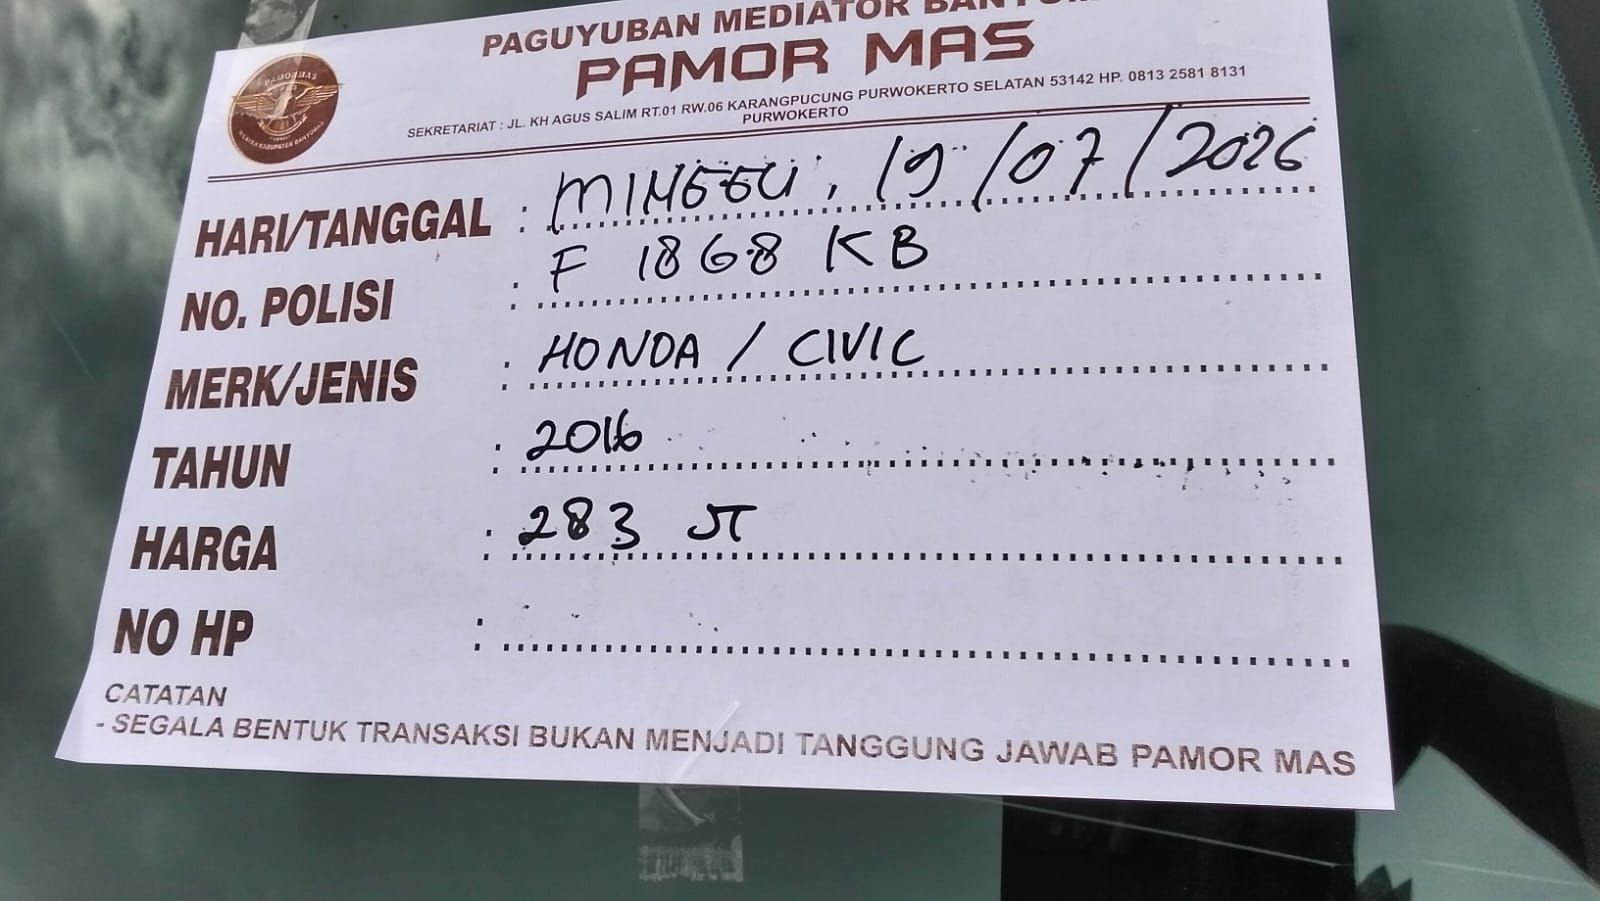 PAGUYUBAN MEDIATOR
PAMOR MAS
SEKRETARIAT : JL. KH AGUS SALIM RT.01 RW.06 KARANGPUCUNG PURWOKERTO SELATAN 53142 HP. 0813 2581 8131
PURWOKERTO
PAMORMAS
HARI/TANGGAL : MINGGU, 19/07/2026
NO. POLISI : F 1868 KB
MERK/JENIS : HONDA / CIVIC
TAHUN : 2016
HARGA : 283 JT
NO HP :
CATATAN
- SEGALA BENTUK TRANSAKSI BUKAN MENJADI TANGGUNG JAWAB PAMOR MAS